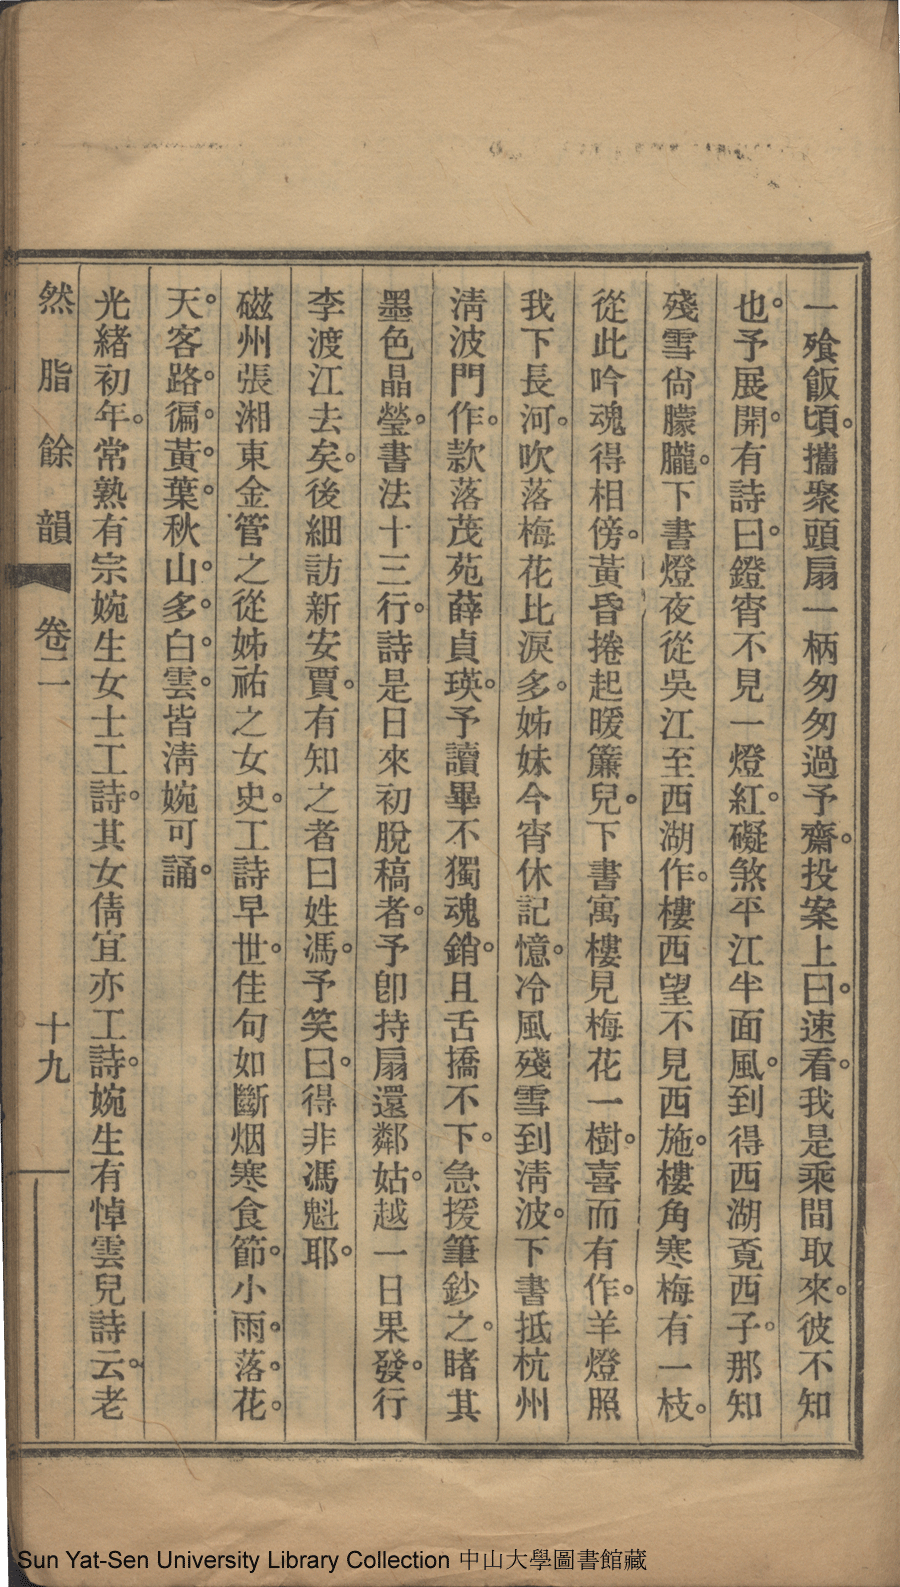 一飱飯頃。攜聚頭扇一柄匆匆過予齋。投案上曰。速看。我是乘間取來。彼不知
也。予展開。有詩曰。鐙宵不見一燈紅。礙煞平江半面風。到得西湖覔西子。那知
殘雪尙朦朧。下書燈夜從吳江至西湖作。樓西望不見西施。樓角寒梅有一枝。
從此吟魂得相傍。黃昏捲起暖簾兒。下書寓樓見梅花一樹。喜而有作。羊燈照
我下長河。吹落梅花比淚多。姊妹今宵休記憶。冷風殘雪到淸波。下書抵杭州
淸波門作。款落茂苑薛貞瑛。予讀畢不獨魂銷。且舌撟不下。急援筆鈔之。睹其
墨色晶瑩。書法十三行。詩是日來初脫稿者。予卽持扇還鄰姑。越一日果發。行
李渡江去矣。後細訪新安賈。有知之者曰姓馮。予笑曰。得非馮魁耶。
磁州張湘東金管之從姊祐之女史。工詩早世。佳句如斷烟寒食節。小雨。落。花。
天。客路。徧。黃。葉。秋山。多。白。雲。皆淸婉可誦。
光緖初年。常熟有宗婉生女士工詩。其女倩宜亦工詩。婉生有悼雲兒詩云。老
然脂餘韻 卷二 十九
Sun Yat-Sen University Library Collection 中山大學圖書館藏